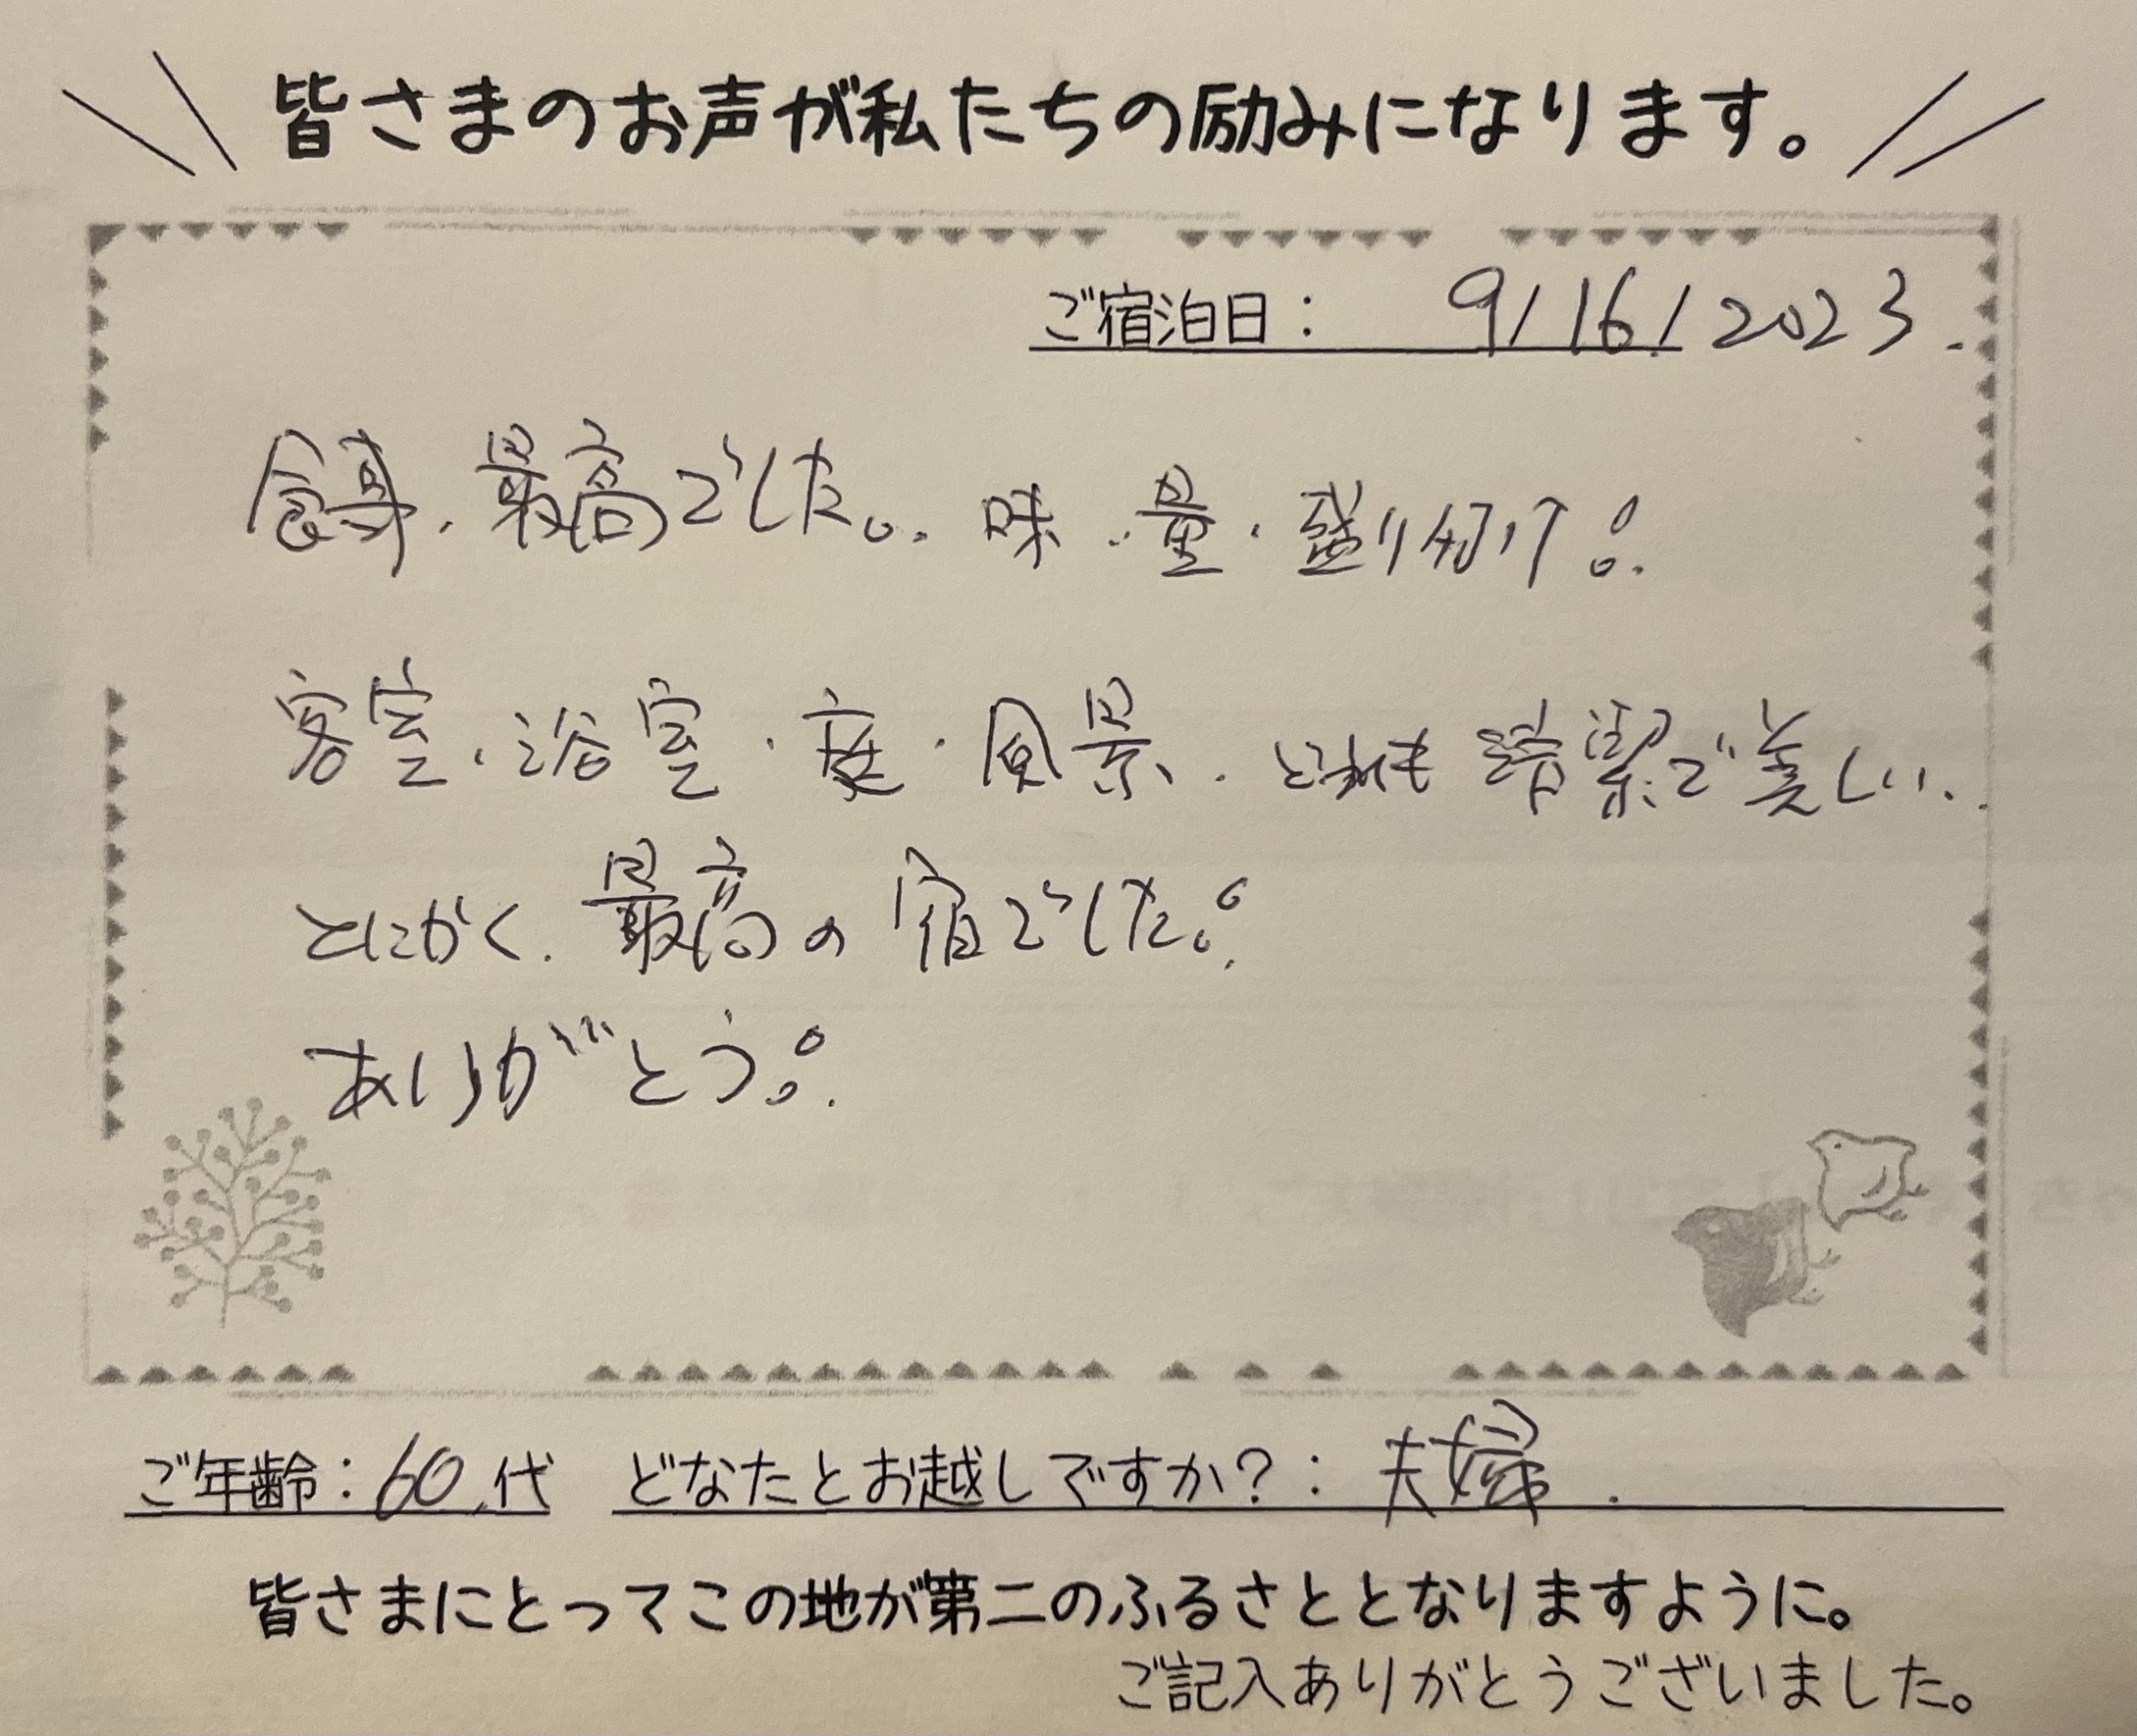 皆さまのお声が私たちの励みになります。
ご宿泊日： 9/16/2023.
食事、最高でした。味・量・盛り付け！
客室、浴室・庭・風景、どれも清潔で美しい、
とにかく、最高の宿でした！
ありがとう！
ご年齢：60代 どなたとお越しですか？：夫婦.
皆さまにとってこの地が第二のふるさととなりますように。
ご記入ありがとうございました。